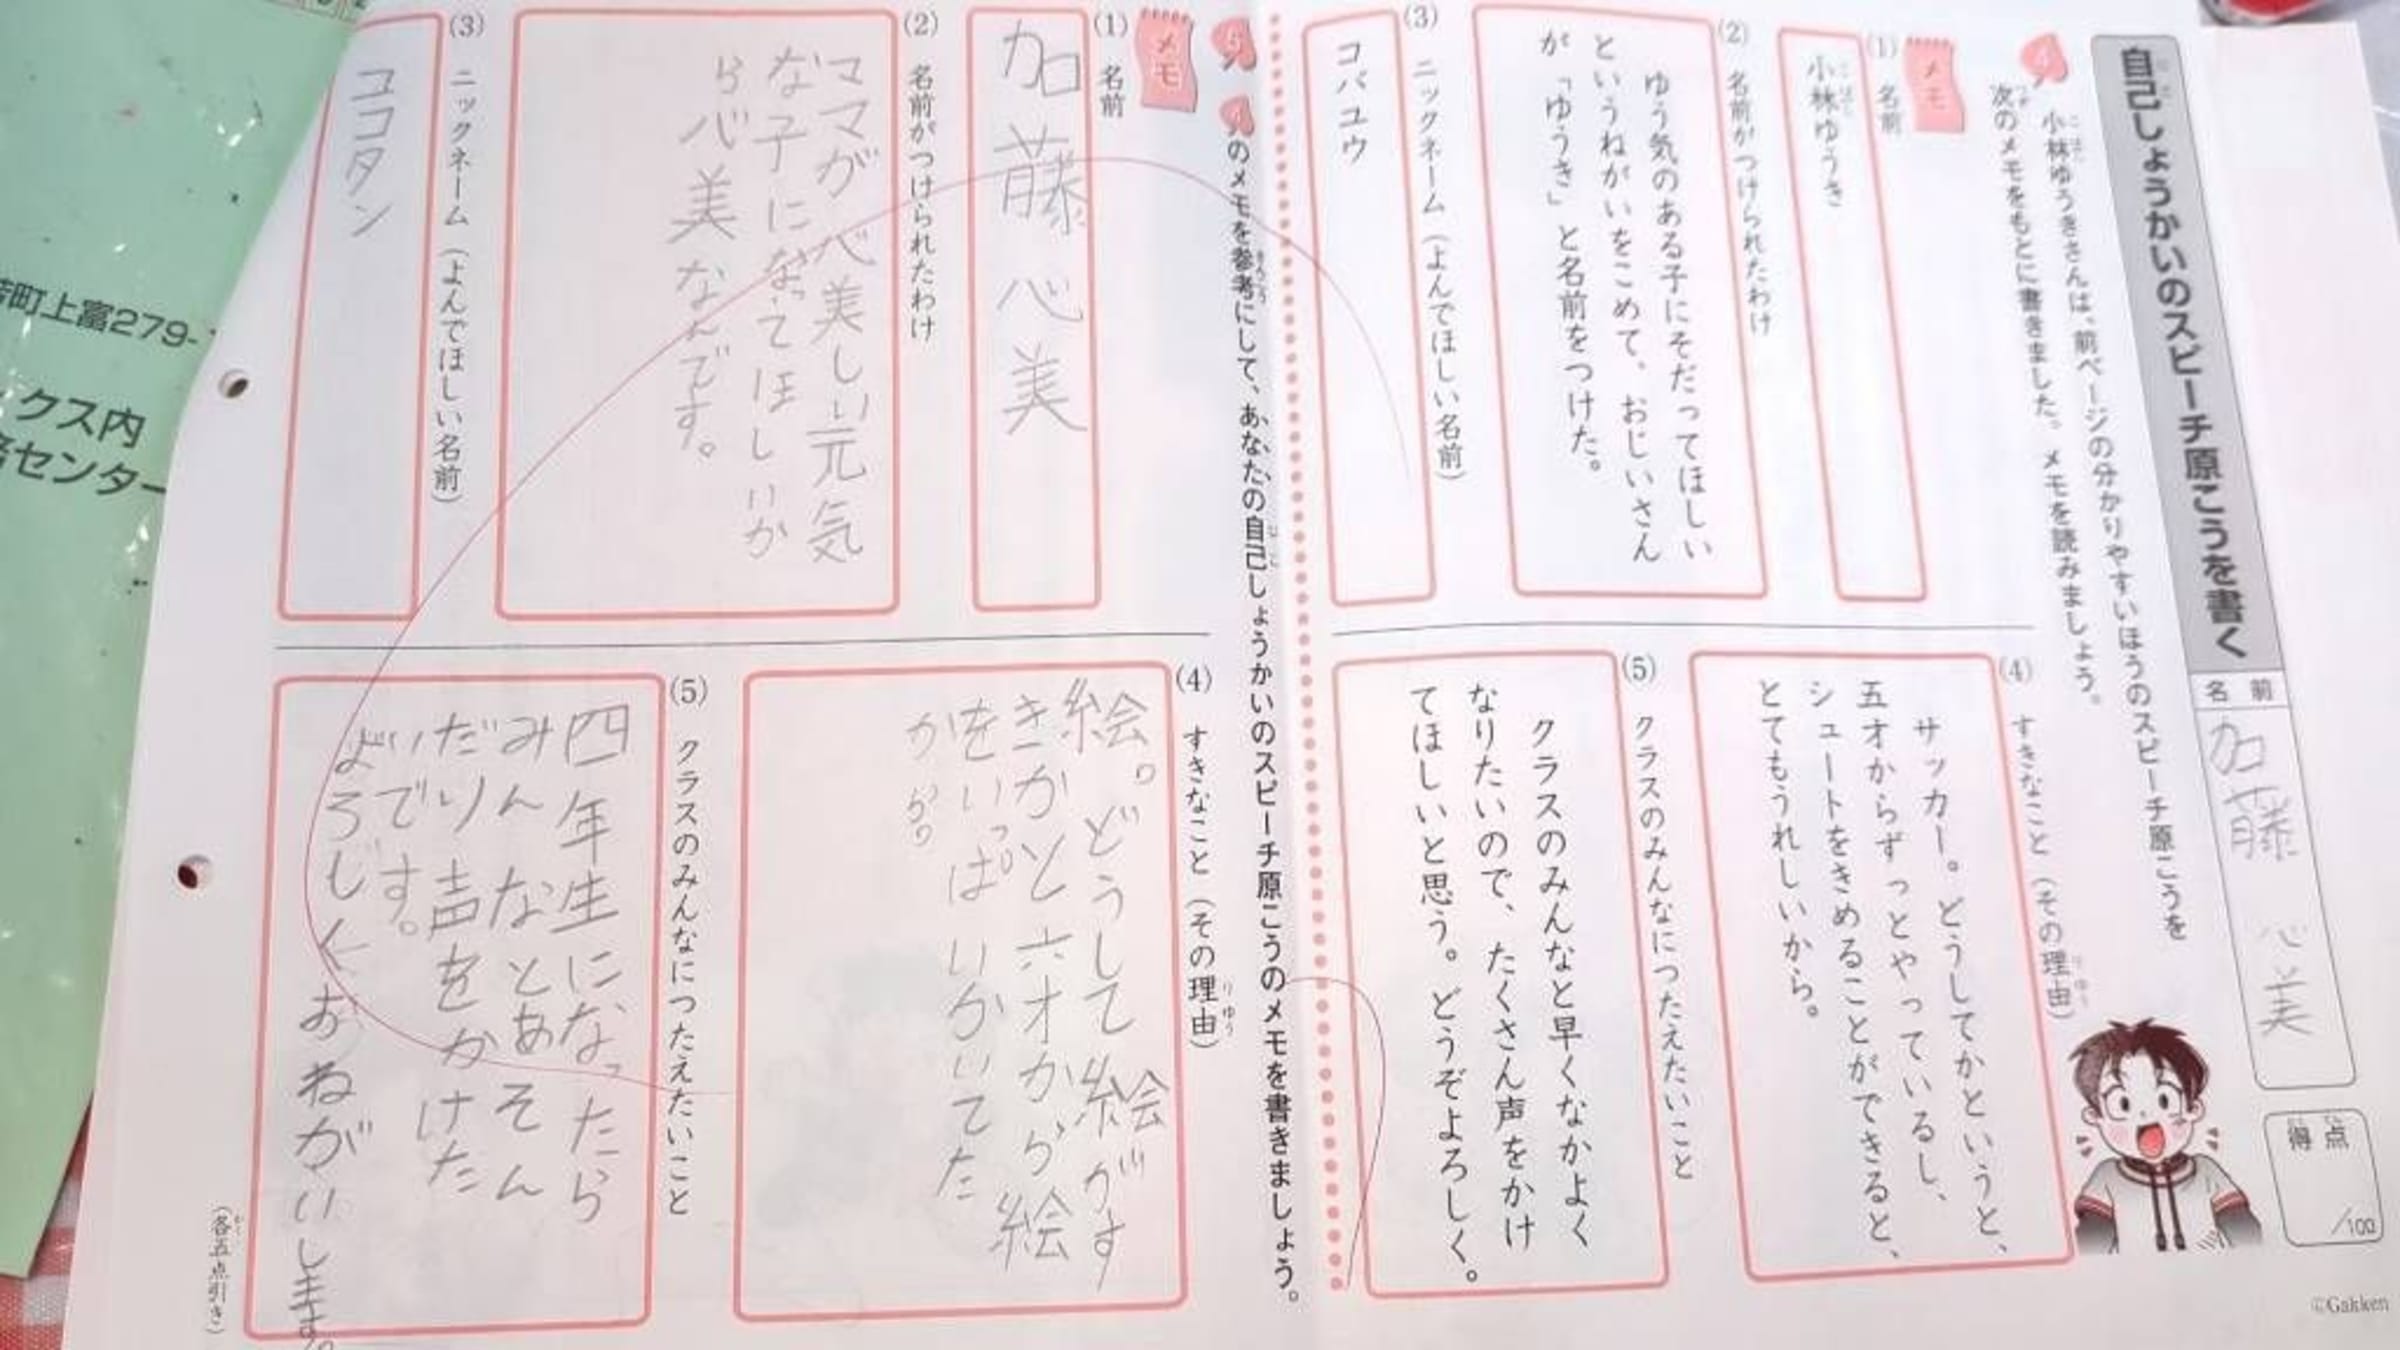 自己しょうかいのスピーチ原こうを書く
名前
加藤 心美
得点
/100
小林ゆうきさんは、前ページの分かりやすいほうのスピーチ原こうを
次のメモをもとに書きました。メモを読みましょう。
メモ
(1) 名前
小林ゆうき
(2) 名前がつけられたわけ
ゆう気のある子にそだってほしい
というねがいをこめて、おじいさん
が「ゆうき」と名前をつけた。
(3) ニックネーム(よんでほしい名前)
コバユウ
(4) すきなこと(その理由)
サッカー。どうしてかというと、
五才からずっとやっているし、
シュートをきめることができると、
とてもうれしいから。
(5) クラスのみんなにつたえたいこと
クラスのみんなと早くなかよく
なりたいので、たくさん声をかけ
てほしいと思う。どうぞよろしく。
5
4のメモを参考にして、あなたの自己しょうかいのスピーチ原こうのメモを書きましょう。
メモ
(1) 名前
加藤心美
(2) 名前がつけられたわけ
ママが心美しい元気
な子になってほしいか
ら心美なんです。
(3) ニックネーム(よんでほしい名前)
ココタン
(4) すきなこと(その理由)
絵。どうして絵がす
きかと六才から絵
をいっぱいかいてた
から。
(5) クラスのみんなにつたえたいこと
四年生になったら
みんなとあそん
だり声をかけた
いです。
よろしくおねがいします。
(各五点引き)
©Gakken
町上富279-
クス内
センター